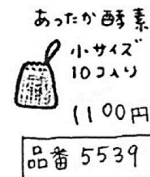 あったか酵素
小サイズ
10コ入り
1100円
品番 5539